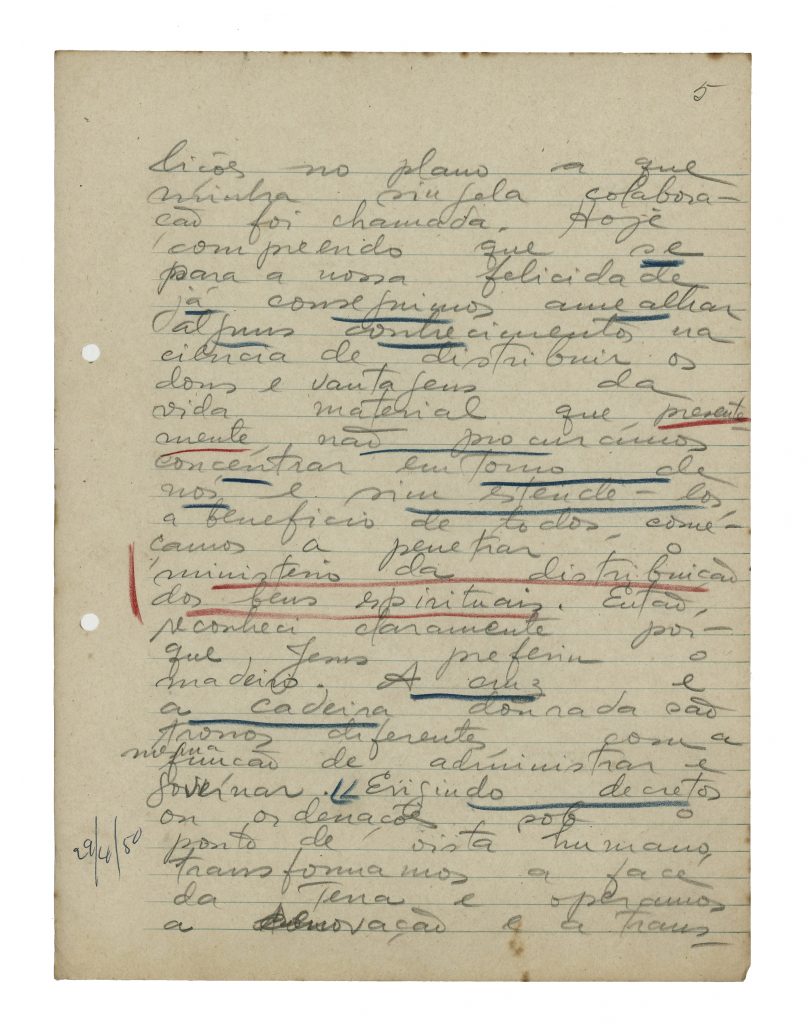 5
lições no plano a que
minha singela colabora-
ção foi chamada. Hoje
compreendo que se
para a nossa felicidade
já conseguimos amealhar
alguns conhecimentos na
ciência de distribuir os
dons e vantagens da
vida material que presente-
mente não procuramos
concentrar em torno de
nós e sim estende-los
a beneficio de todos, come-
çamos a penetrar o
ministério da distribuição
dos bens espirituais. Então,
reconheci claramente por-
que Jesus preferiu o
madeiro. A cruz e
a cadeira dourada são
tronos diferentes com a
mesma função de administrar e
governar. Erigindo decretos
ou ordenações sob o
ponto de vista humano,
transformamos a face
da Terra e operamos
a renovação e a trans-
29/4/50